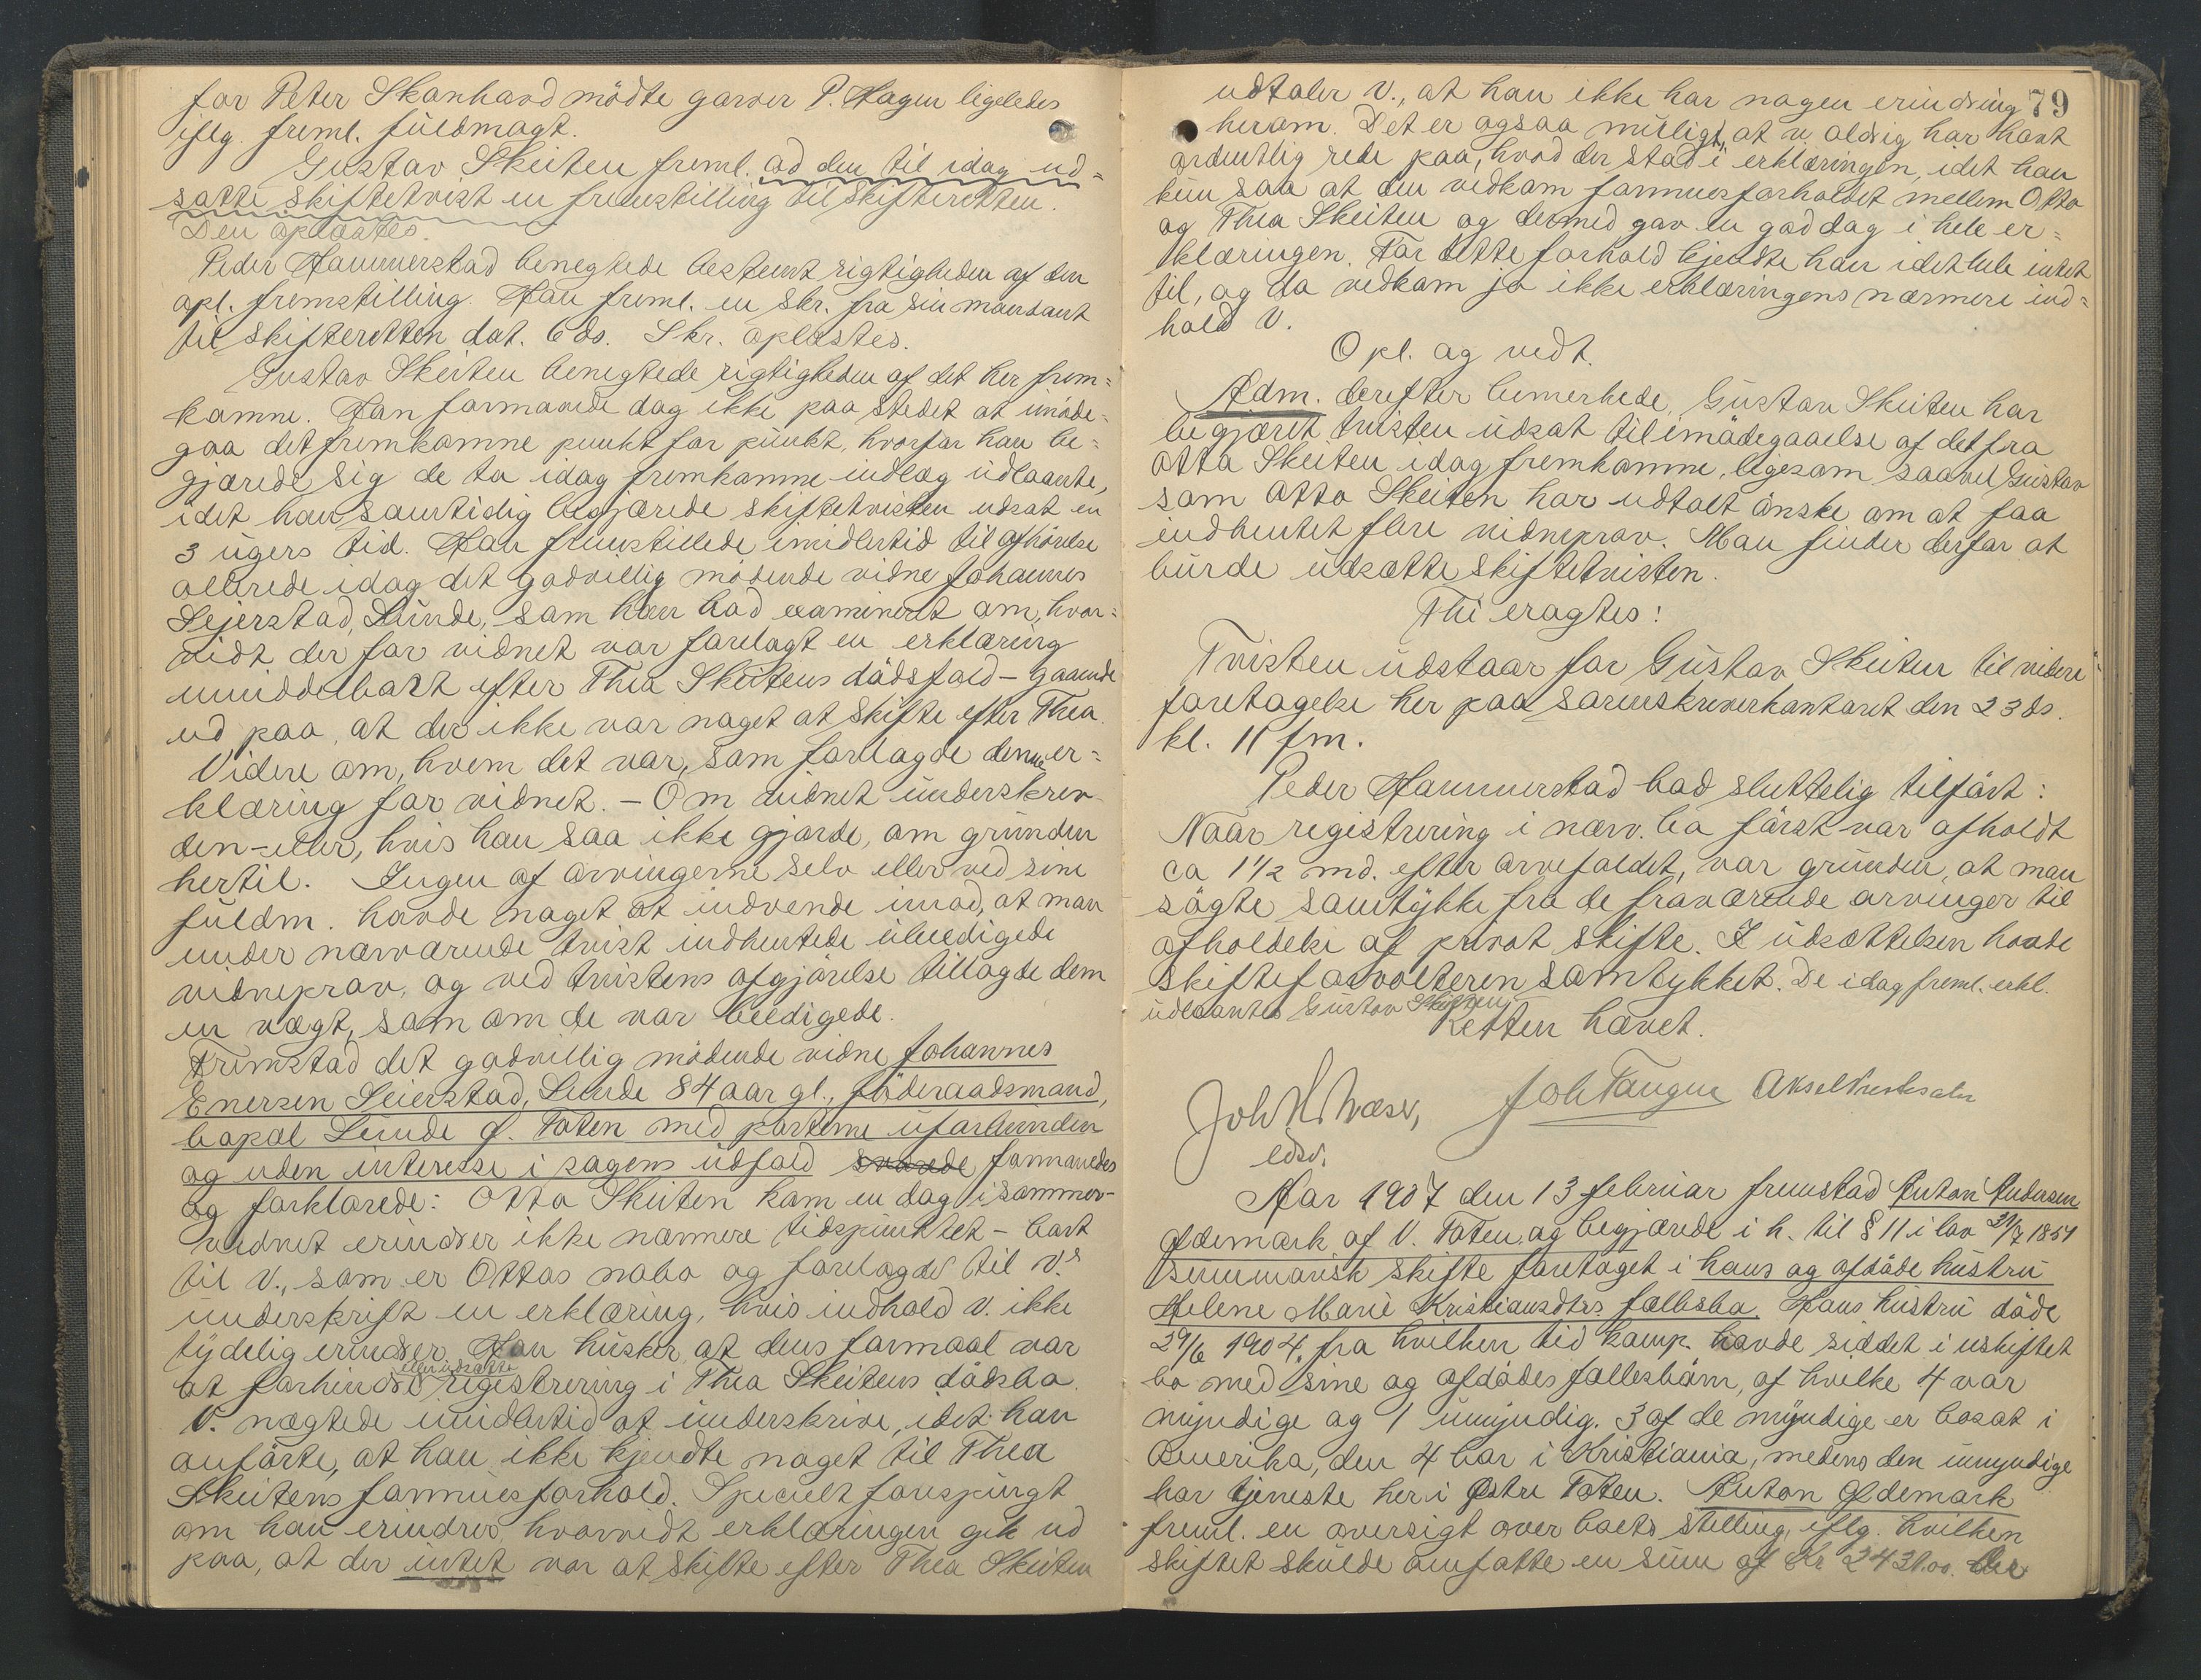 for Peter Skanhavd mødte garver P. Hagen ligeledes
iflg. freml. fuldmagt.
Gustav Skeiten freml. ad den til idag ud=
satte skiftetvist en fremstilling til skifteretten.
Den oplæstes.
Peder Hammerstad benegtede bestemt rigtigheden af den
opl. fremstilling. Han freml. en skr. fra sin mandant
til skifteretten dat. 6 ds. Skr. oplæstes.
Gustav Skeiten benegtede rigtigheden af det her frem=
komne. Han formaaede dog ikke paa stedet at imøde=
gaa det fremkomne punkt for punkt, hvorfor han be=
gjærede sig de to idag fremkomne indlæg udlaante,
idet han samtidig begjærede skiftetvisten udsat en
3 ugers tid. Han fremstillede imidlertid til afhørelse
allerede idag det godvillig mødende vidne Johannes
Sejerstad, Lunde, som han bad examineret om, hvor=
vidt der for vidnet var forelagt en erklæring
umiddelbart efter Thea Skeitens dødsfald – gaaende
ud paa, at der ikke var noget at skifte efter Thea.
Videre om, hvem det var, som forelagde denne er=
klæring for vidnet. – Om vidnet underskrev
den – eller, hvis han saa ikke gjorde, om grunden
hertil. Ingen af arvingerne selv eller ved sine
fuldm. havde noget at indvende imod, at man
under nærværende tvist indhentede ubeedigede
vidneprov, og ved tvistens afgjørelse tillagde dem
en vægt, som om de var beedigede.
Fremstod det godvillig mødende vidne Johannes
Enersen Seierstad, Lunde 84 aar gl., føderaadsmand,
bopæl Lunde Ø. Toten med parterne uforbunden
og uden interesse i sagens udfald svarede formanedes
og forklarede: Otto Skeiten kom en dag i sommer –
vidnet erindrer ikke nærmere tidspunktet – bort
til V., som er Ottos nabo og forelagde til V.s
underskrift en erklæring, hvis indhold V. ikke
tydelig erindrer. Han husker at dens formaal var
at forhindre eller udsætte registrering i Thea Skeitens dødsbo.
V. nægtede imidlertid at underskrive, idet han
anførte, at han ikke kjendte noget til Thea
Skeitens formuesforhold. Specielt forespurgt
om han erindrer hvorvidt erklæringen gik ud
paa, at der intet var at skifte efter Thea Skeiten
79
udtaler V., at han ikke har nogen erindring
herom. Det er ogsaa muligt, at V. aldrig har havt
ordentlig rede paa, hvad der stod i erklæringen, idet han
kun saa at den vedkom formuesforholdet mellem Otto
og Thea Skeiten og dermed gav en god dag i hele er=
klæringen. For dette forhold kjendte han idethele intet
til, og da vedkom jo ikke erklæringens nærmere ind=
hold V.
Opl. og vedt.
Adm. derefter bemerkede, Gustav Skeiten har
begjæret tvisten udsat til imødegaaelse af det fra
Otto Skeiten idag fremkomne, ligesom saavel Gustav
som Otto Skeiten har udtalt ønske om at faa
indhentet flere vidneprov. Man finder derfor at
burde udsætte skiftetvisten.
Thi eragtes:
Tvisten udstaar for Gustav Skeiten til videre
foretagelse her paa sorenskriverkontoret den 23 ds.
kl. 11 fm.
Peder Hammerstad bad sluttelig tilført:
Naar registrering i nærv. bo først var afholdt
ca 1 1/2 md. efter arvefaldet, var grunden, at man
søgte samtykke fra de fraværende arvinger til
afholdelse af privat skifte. I udsættelsen havde
skifteforvalteren samtykket. De idag freml. erkl.
udlaantes Gustav Skeiten.
Retten hævet.
Joh. Tangen Aksel
edsv.
Aar 1907 den 13 februar fremstod Anton Andersen
Ødemark af V. Toten og begjærede i h. til § 11 i lov 31/7 1851
summarisk skifte foretaget i hans og afdøde hustru
Helene Marie Kristiansdtrs fællesbo. Hans hustru døde
29/6 1904, fra hvilken tid komp. havde siddet i uskiftet
bo med sine og afdødes fællesbørn, af hvilke 4 var
myndige og 1 umyndig. 3 af de myndige er bosat i
Amerika, den 4 bor i Kristiania, medens den umyndige
har tjeneste her i Østre Toten. Anton Ødemark
freml. en oversigt over boets stilling, iflg. hvilken
skiftet skulde omfatte en sum af Kr 2431.00.